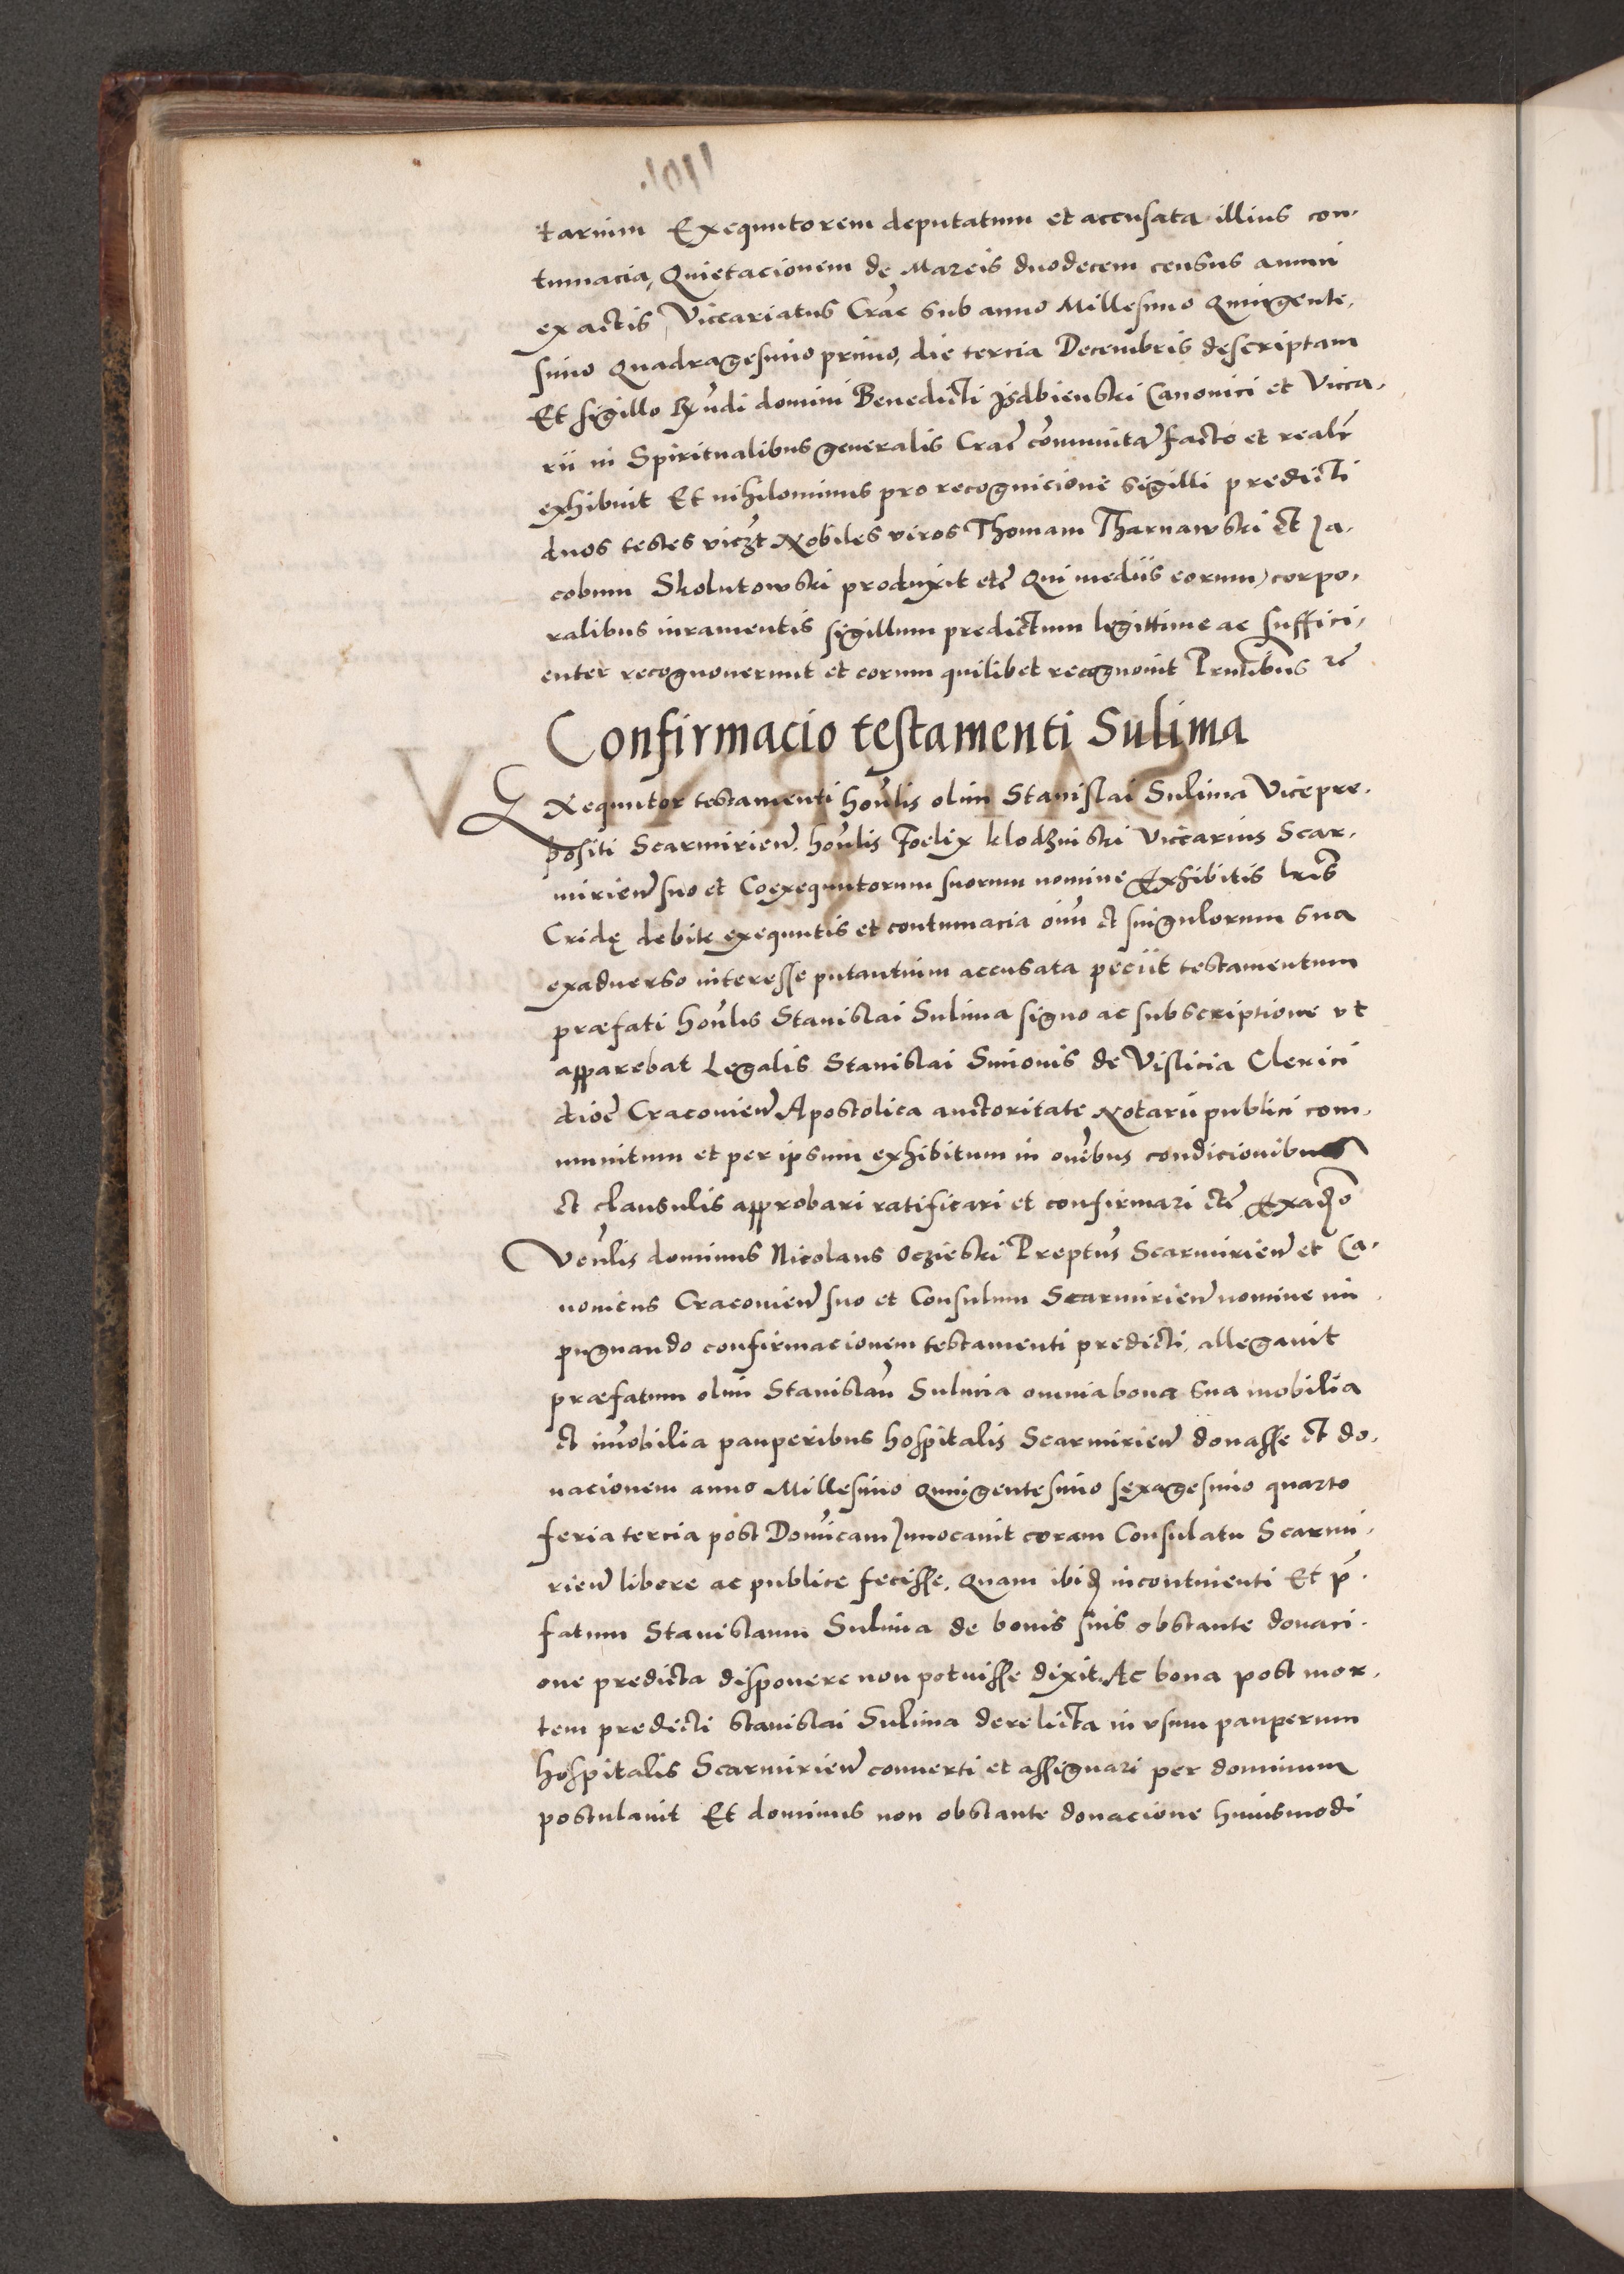 tarium Exequutorem deputatum et accusata illius con-
tumacia, Quietacionem de Marcis duodecem census annui
ex actis Viccariatus Crac sub anno Millesimo Quingente-
simo Quadragesimo primo, die tercia Decembris descriptam
Et sigillo Rundi domini Benedicti Jsdbienski Canonici et Vicca-
rii in Spiritualibus generalis Crac communitam facto et realr
exhibuit Et nihilominus pro recognicione sigilli predicti
duos testes viczt Nobiles viros Thomam Tharnawski et Ja-
cobum Skolutowski produxit etc Qui mediis eorum corpo-
ralibus iuramentis sigillum predictum legittime ac suffici-
enter recognouerunt et eorum quilibet recognouit Pntibus etc
Confirmacio testamenti Sulima
Exequutor testamenti honlis olim Stanislai Sulima Vicepre-
positi Scarmirien. honlis Foelix klodzinski viccarius Scar-
mirien suo et Coexequutorum suorum nomine Exhibitis lris
Cridę debite exequutis et contumacia oim et singulorum sua
exaduerso interesse putantium accusata peciit testamentum
præfati honlis Stanislai Sulima signo ac subscriptione vt
apparebat Legalis Stanislai Simonis de Vislicia Clerici
dioc Cracouien Apostolica auctoritate Notarii publici com-
munitum et per ipsum exhibitum in omibus condicionibus
et clausulis approbari ratificari et confirmari etc Exadso
Venlis dominus Nicolaus Oczieski Preptus Scarmirien et Ca-
nonicus Cracouien suo et Consulum Scarmirien nomine im
pugnando confirmacionem testamenti predicti, allegauit
præfatum olim Stanislaum Sulima omnia bona sua mobilia
et imobilia pauperibus hospitalis Scarmirien donasse et do-
nacionem anno Millesimo Quingentesimo sexagesimo quarto
feria tercia post Domicam Juuocauit coram Consulatu Scarmi-
rien libere ac publice fecisse, Quam ibid incontinenti Et p-
fatum Stanislaum Sulima de bonis suis obstante donaci-
one predicta disponere non potuisse dixit. Ac bona post mor-
tem predicti Stanislai Sulima derelicta in vsum pauperum
hospitalis Scarmirien conuerti et assignari per dominum
postulauit Et dominus non obstante donacione huiusmodi